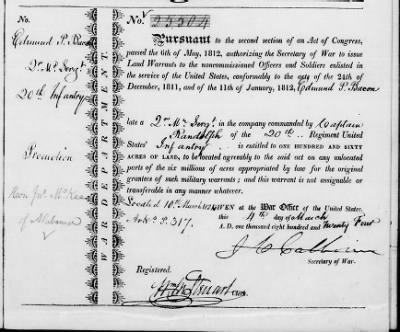 No.
Edmund P. Bacon
Qr. Mr. Sergt.
20th Infantry
Promotion
Honl. Jno. McKee
of Alabama
WAR DEPARTMENT.
No. 25504
Pursuant to the second section of an Act of Congress,
passed the 6th of May, 1812, authorizing the Secretary of War to issue
Land Warrants to the noncommissioned Officers and Soldiers enlisted in
the service of the United States, conformably to the acts of the 24th of
December, 1811, and of the 11th of January, 1812, Edmund P. Bacon
late a Qr. Mr. Sergt. in the company commanded by Captain
Randolph of the 20th Regiment United
States' Infantry is entitled to ONE HUNDRED AND SIXTY
ACRES OF LAND, to be located agreeably to the said act on any unlocated
parts of the six millions of acres appropriated by law for the original
grantees of such military warrants; and this warrant is not assignable or
transferable in any manner whatever.
Located 10th March 1824
GIVEN at the War Office of the United States,
Ark. 2 P. 317.
this 4th day of March
A. D. one thousand eight hundred and Twenty Four
J C Calhoun
Secretary of War.
Registered.
Clerk